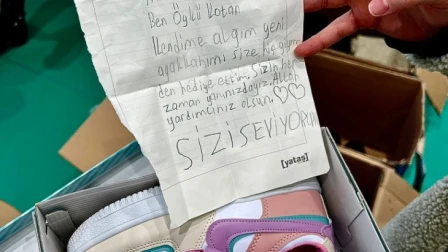 Ben Öykü Vatan
Kendime aldığım yeni
ayakkabımı size hiç giyme
den hediye ettim. Sizin her
zaman yanınızdayız. Allah
yardımcınız olsun.
SİZİ SEVİYORUM
[yataş]